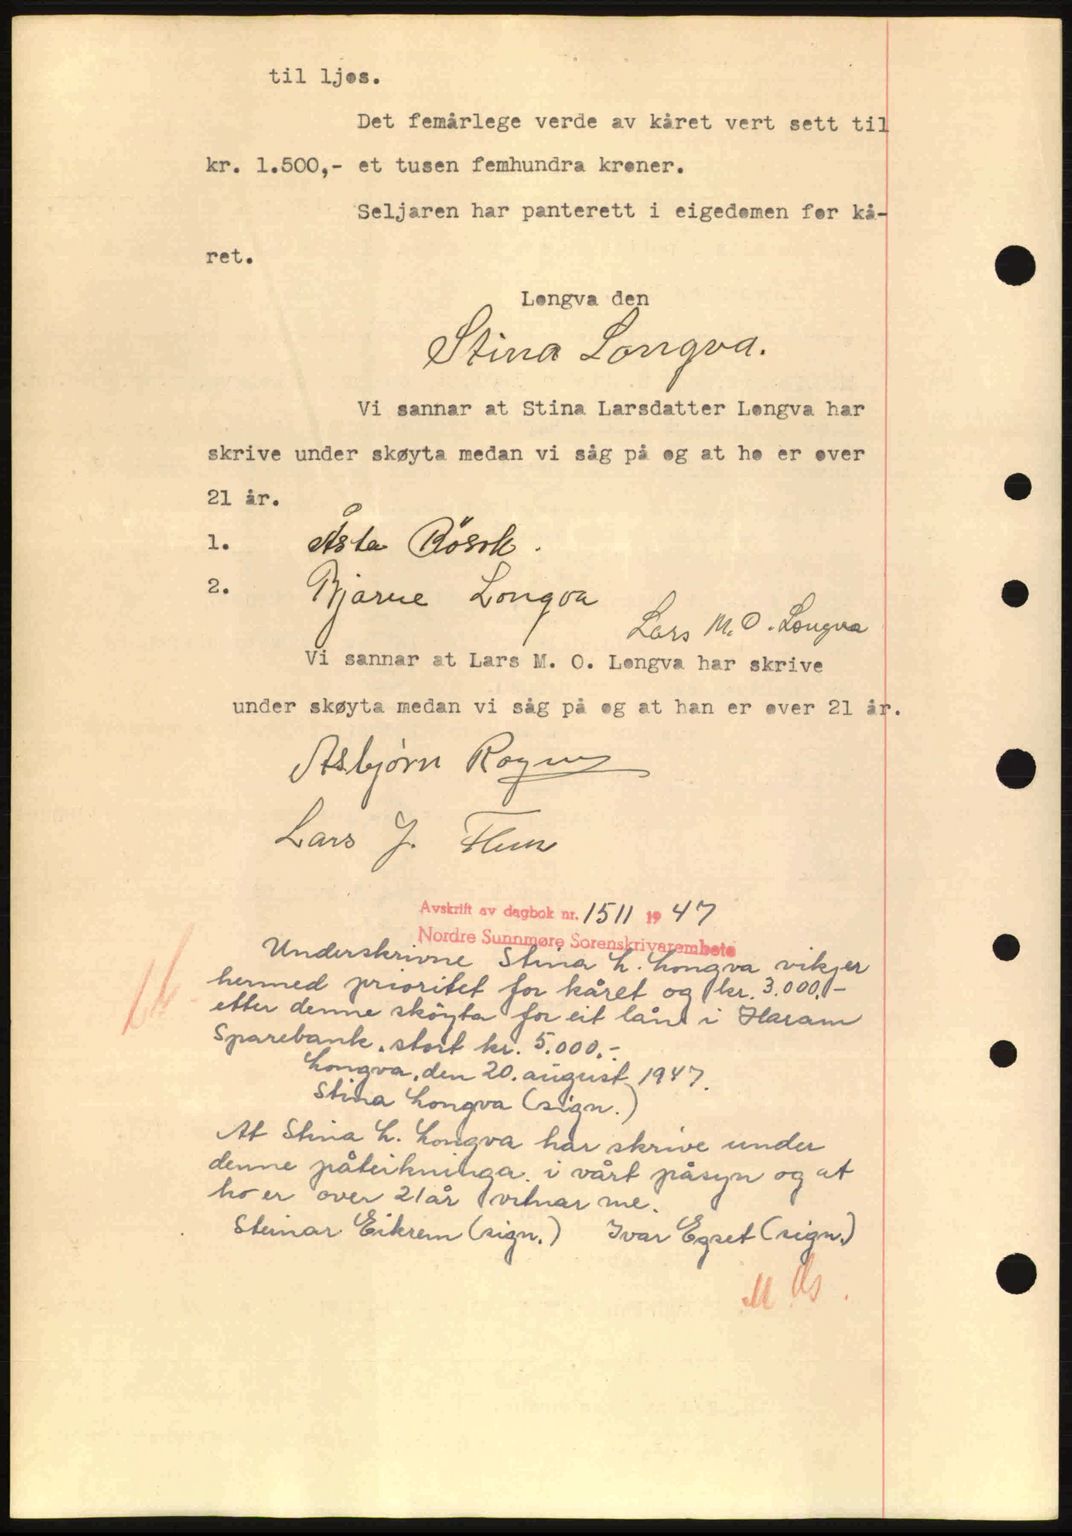 til ljos.
Det femårlege verde av kåret vert sett til
kr. 1.500,- et tusen femhundra kroner.
Seljaren har panterett i eigedomen for kå-
ret.
Longva den
Stina Longva.
Vi sannar at Stina Larsdatter Longva har
skrive under skøyta medan vi såg på og at ho er over
21 år.
1. Åsta Rösok.
2. Bjarne Longva
Lars M. O. Longva
Vi sannar at Lars M. O. Longva har skrive
under skøyta medan vi såg på og at han er over 21 år.
Asbjörn Rogne
Lars J. Flem
Avskrift av dagbok nr. 1511 1947
Nordre Sunnmøre Sorenskrivarembete
Underskrivne Stina L. Longva vikjer
hermed prioritet for kåret og kr. 3.000,-
etter denne sköyta for eit lån i Haram
Sparebank, stort kr. 5.000.-
Longva, den 20. august 1947.
Stina Longva (sign.)
At Stina L. Longva har skrive under
denne påteikninga i vårt påsyn og at
ho er over 21 år vitnar me.
Steinar Eikrem (sign.) Ivar Egset (sign.)